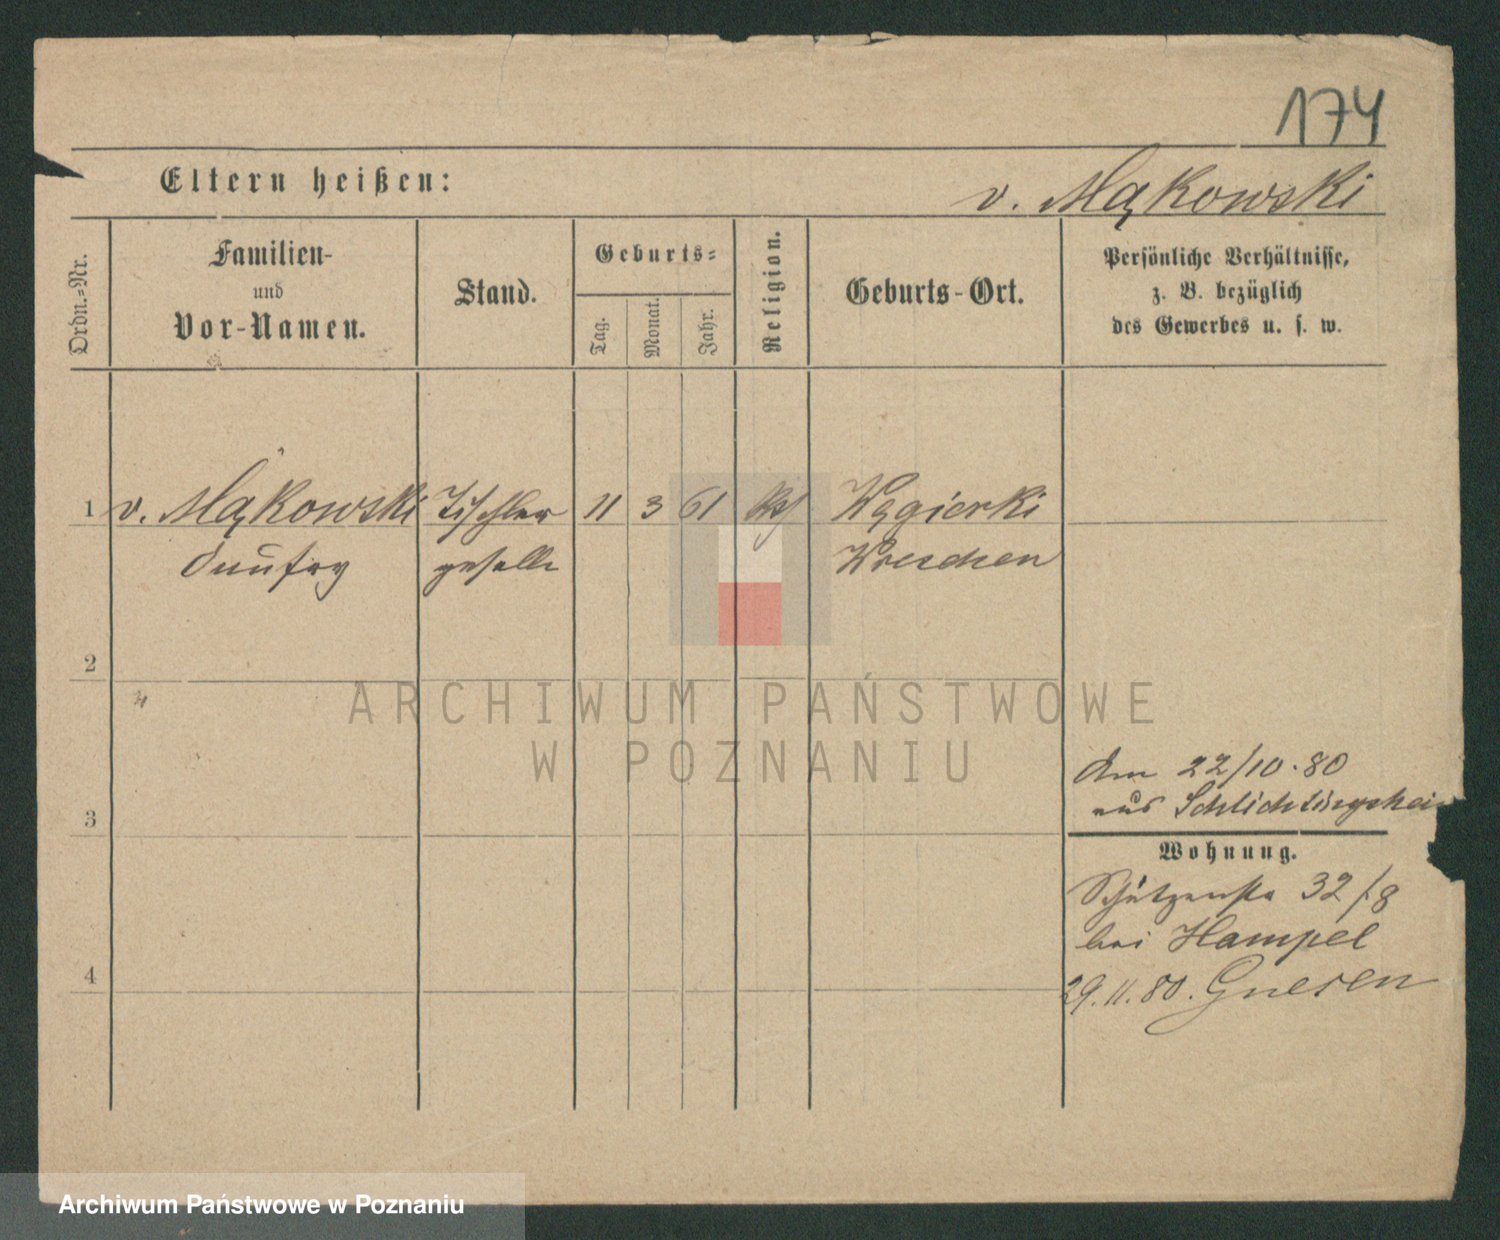 174
Eltern heißen:
v. Mąkowski
Ordn.=Nr.
Familien-
und
Vor-Namen.
Stand.
Geburts=
Tag.
Monat.
Jahr.
Religion.
Geburts-Ort.
Persönliche Verhältnisse,
z. B. bezüglich
des Gewerbes u. s. w.
1 v. Mąkowski Tischler 11 3 61 Węgierki
geselle Wreschen
2
3
4
Am 22/10.80
aus Schlichtingshei
Wohnung.
Schützenstr 32/8
bei Hampel
29.11.80. Gnesen
ARCHIWUM PAŃSTWOWE
W POZNANIU
Archiwum Państwowe w Poznaniu